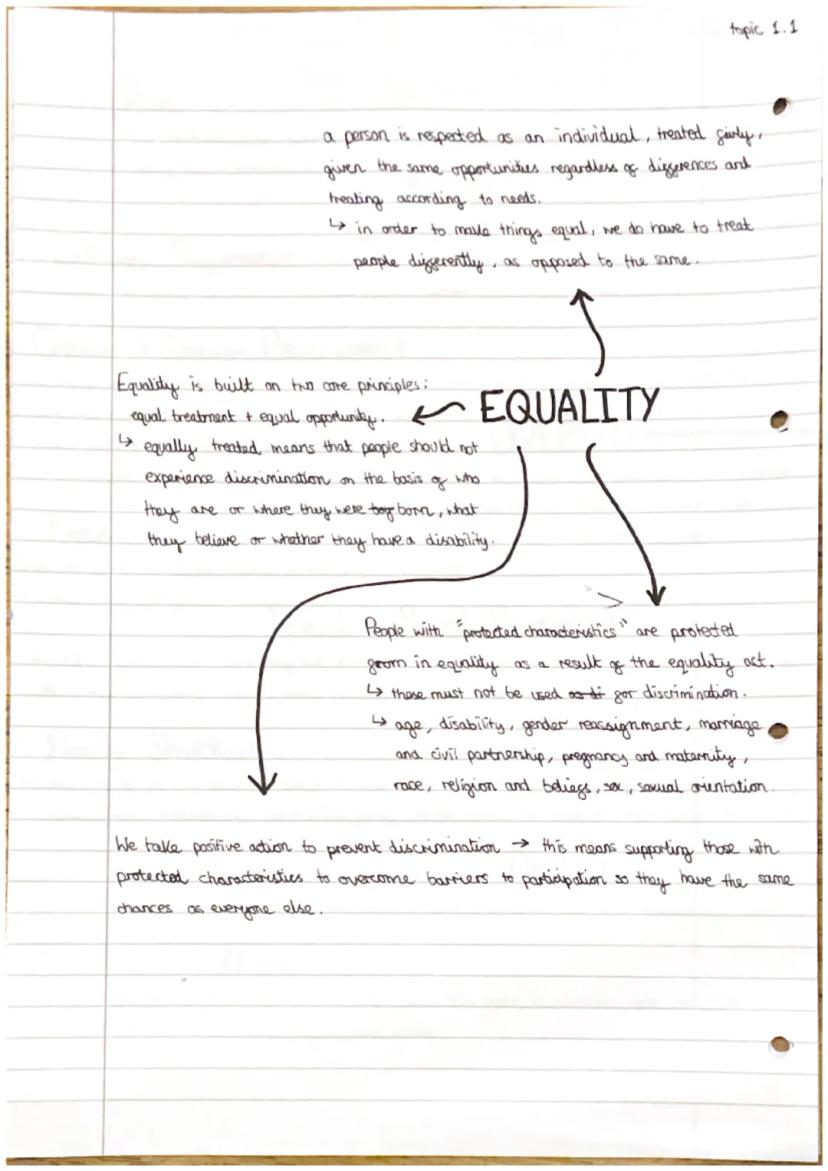 topic 1.1
a person is respected as an individual, treated fairly,
given the same opportunities regardless of differences and
treating according to needs.
↳ in order to make things equal, we do have to treat
people differently, as opposed to the same.
EQUALITY
Equality is built on two core principles:
equal treatment + equal opportunity.
↳ equally treated means that people should not
experience discrimination on the basis of who
they are or where they were born, what
they believe or whether they have a disability.
People with "protected characteristics" are protected
from in equality as a result of the equality act.
↳ these must not be used for discrimination.
↳ age, disability, gender reassignment, marriage
and civil partnership, pregnancy and maternity,
race, religion and beliefs, sex, sexual orientation.
We take positive action to prevent discrimination → this means supporting those with
protected characteristics to overcome barriers to participation so they have the same
chances as everyone else.